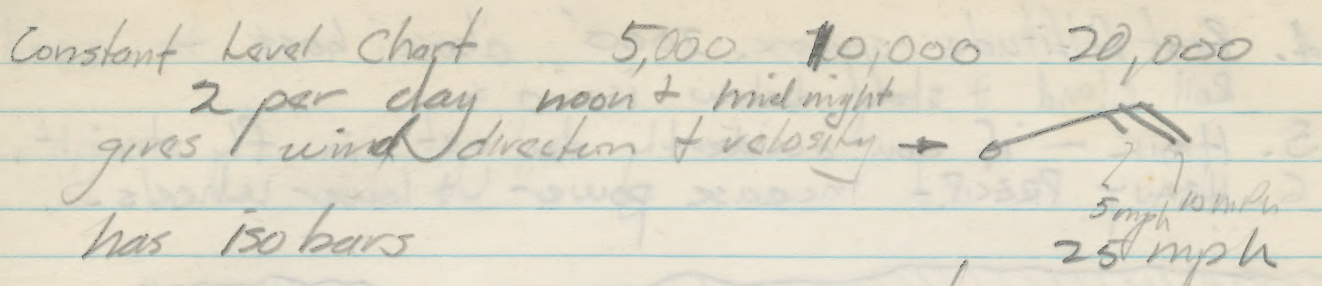 Constant Level Chart 5,000 10,000 20,000
2 per day noon + midnight
gives wind direction + velosity →
5 mph 10 mph
has isobars 25 mph